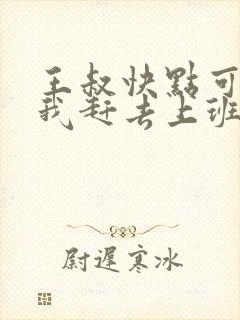 王叔快點可
我赶去上班
尉遲寒冰